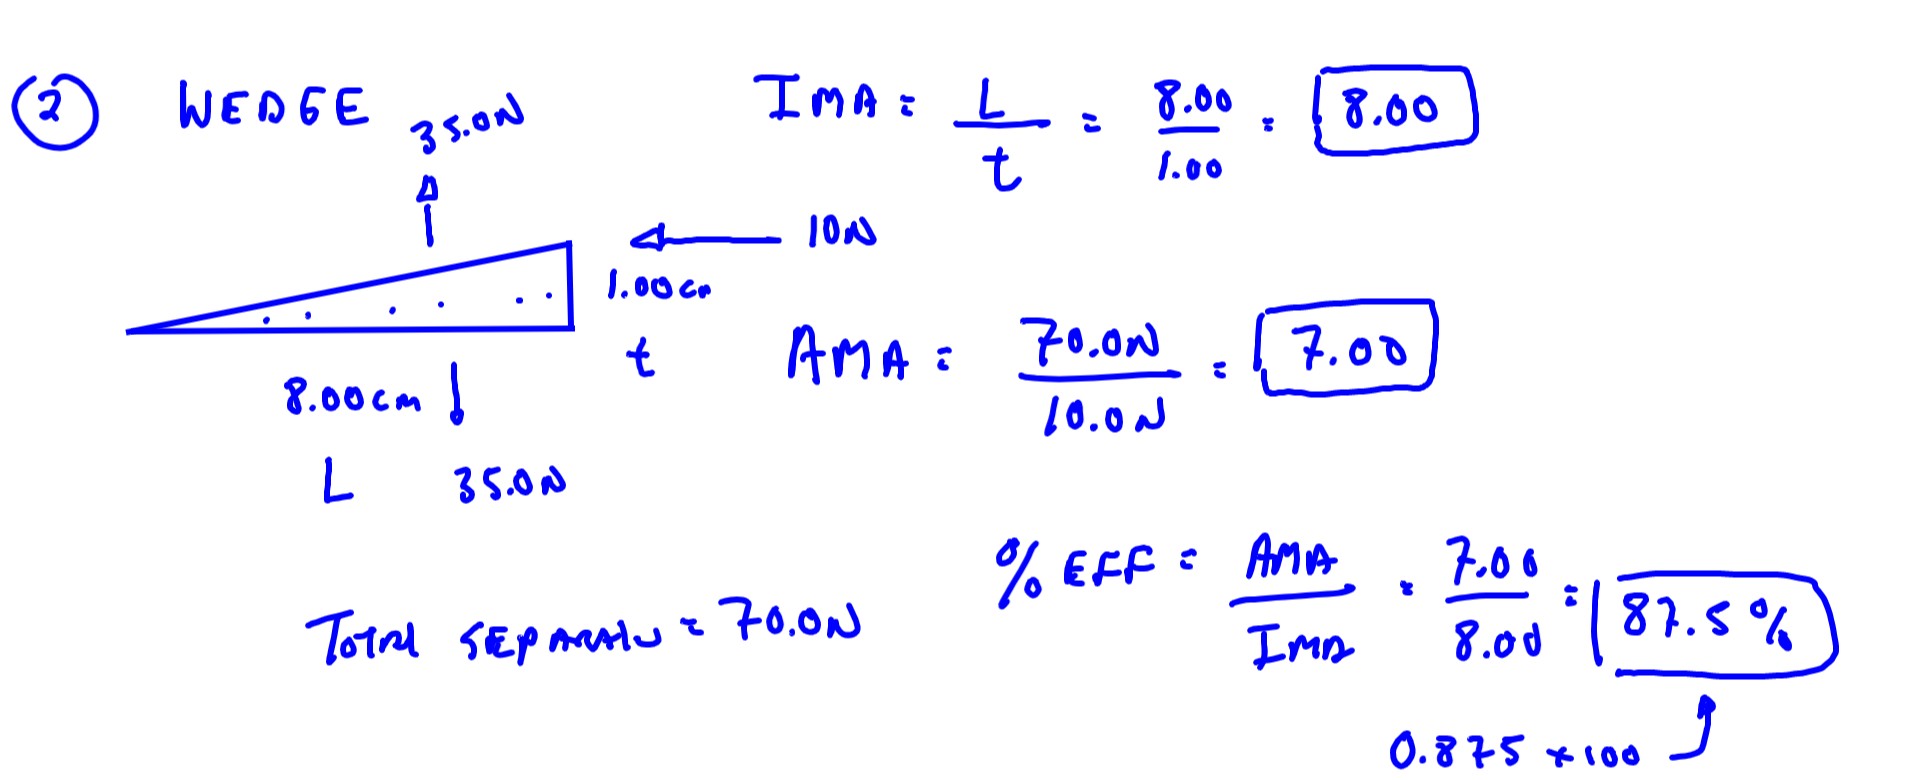 ② WEDGE
35.0N
IMA = L/t = 8.00/1.00 = 8.00
10N
1.00cm
t
AMA = 70.0N/10.0N = 7.00
8.00cm
L
35.0N
% EFF = AMA/IMA = 7.00/8.00 = 87.5%
TOTAL = 70.0N
0.875 × 100